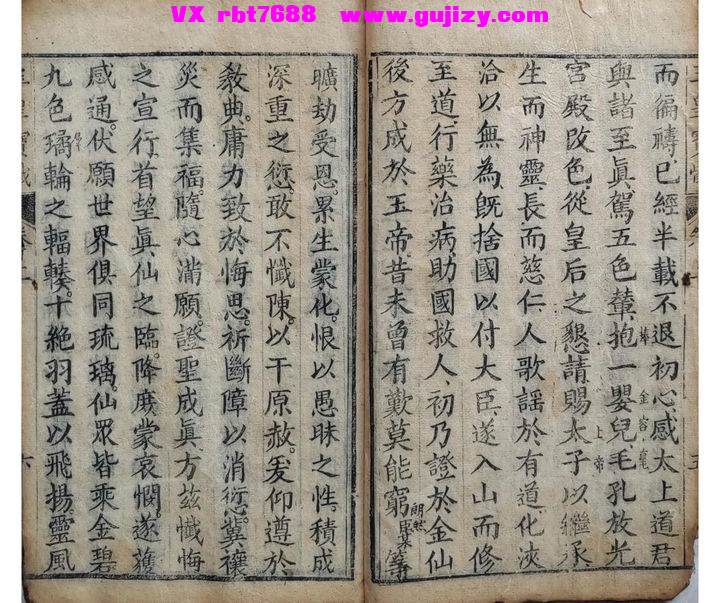 VX rbt7688 www.gujizy.com
而徧禱已經半載不退初心感太上道君
與諸至眞駕五色輦抱一嬰兒毛孔放光
宮殿改色從皇后之懇請賜太子以繼承
生而神靈長而慈仁人歌謠於有道化浹
洽以無為旣捨國以付大臣遂入山而修
至道行藥治病助國救人初乃證於金仙
後方成於玉帝昔未曾有歎莫能窮
曠劫受恩累生蒙化恨以愚昧之性積成
深重之愆敢不懺陳以干原赦爰仰遵於
教典庸力致於悔思祈斷障以消愆冀禳
災而集福隨心滿願證聖成眞方茲懺悔
之宣行首望眞仙之臨降庶蒙哀憫遂獲
感通伏願世界俱同琉璃仙眾皆乘金碧
九色璚輪之輻輳十絕羽蓋以飛揚靈風
卷二
六